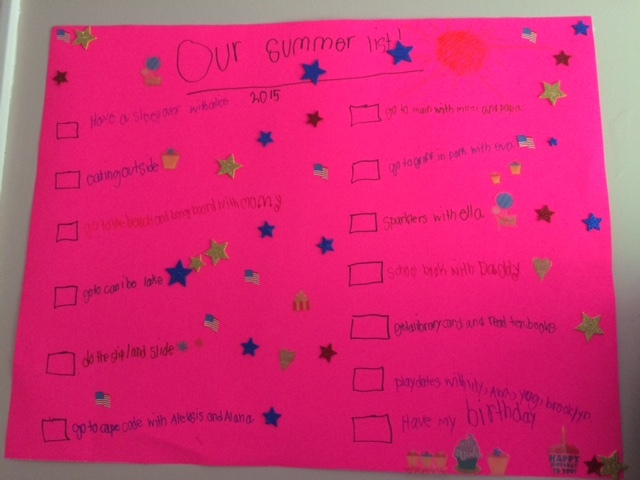 Our summer list!
2015
Have a sleepover with
eating outside
go to the beach and boogy board with mommy
go to canibe lake
do the slip and slide
go to cape code with Aleksis and Alana
go to main with mimi and papa
go to griffin park with eva
sparklers with ella
some bush with Daddy
get a library card and read ten books
playdates with lily, Ava, brooklyn
Have my birthday
HAPPY BIRTHDAY TO YOU!